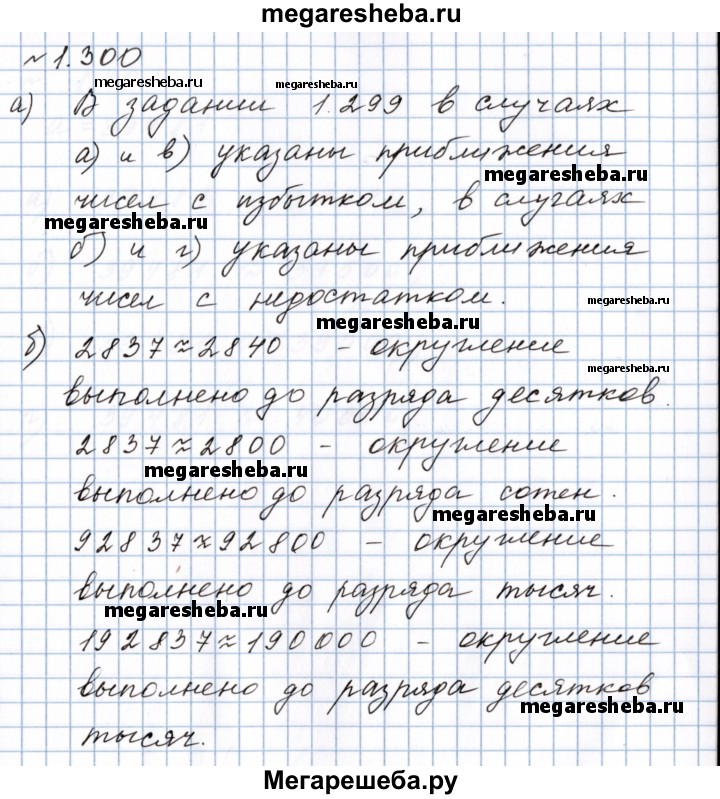 megaresheba.ru
№1.300
megaresheba.ru
megaresheba.ru
а) В задании 1.299 в случаях
а) и в) указаны приближения
megaresheba.ru
чисел с избытком, в случаях
megaresheba.ru
б) и г) указаны приближения
чисел с недостатком.
megaresheba.ru
megaresheba.ru
б) 2837≈2840 - округление
выполнено до разряда десятков.
2837≈2800 - округление
megaresheba.ru
выполнено до разряда сотен.
megaresheba.ru
92837≈92800 - округление
выполнено до разряда тысяч.
megaresheba.ru
192837≈190000 - округление
выполнено до разряда десятков
megaresheba.ru
тысяч.
Мегарешеба.ру